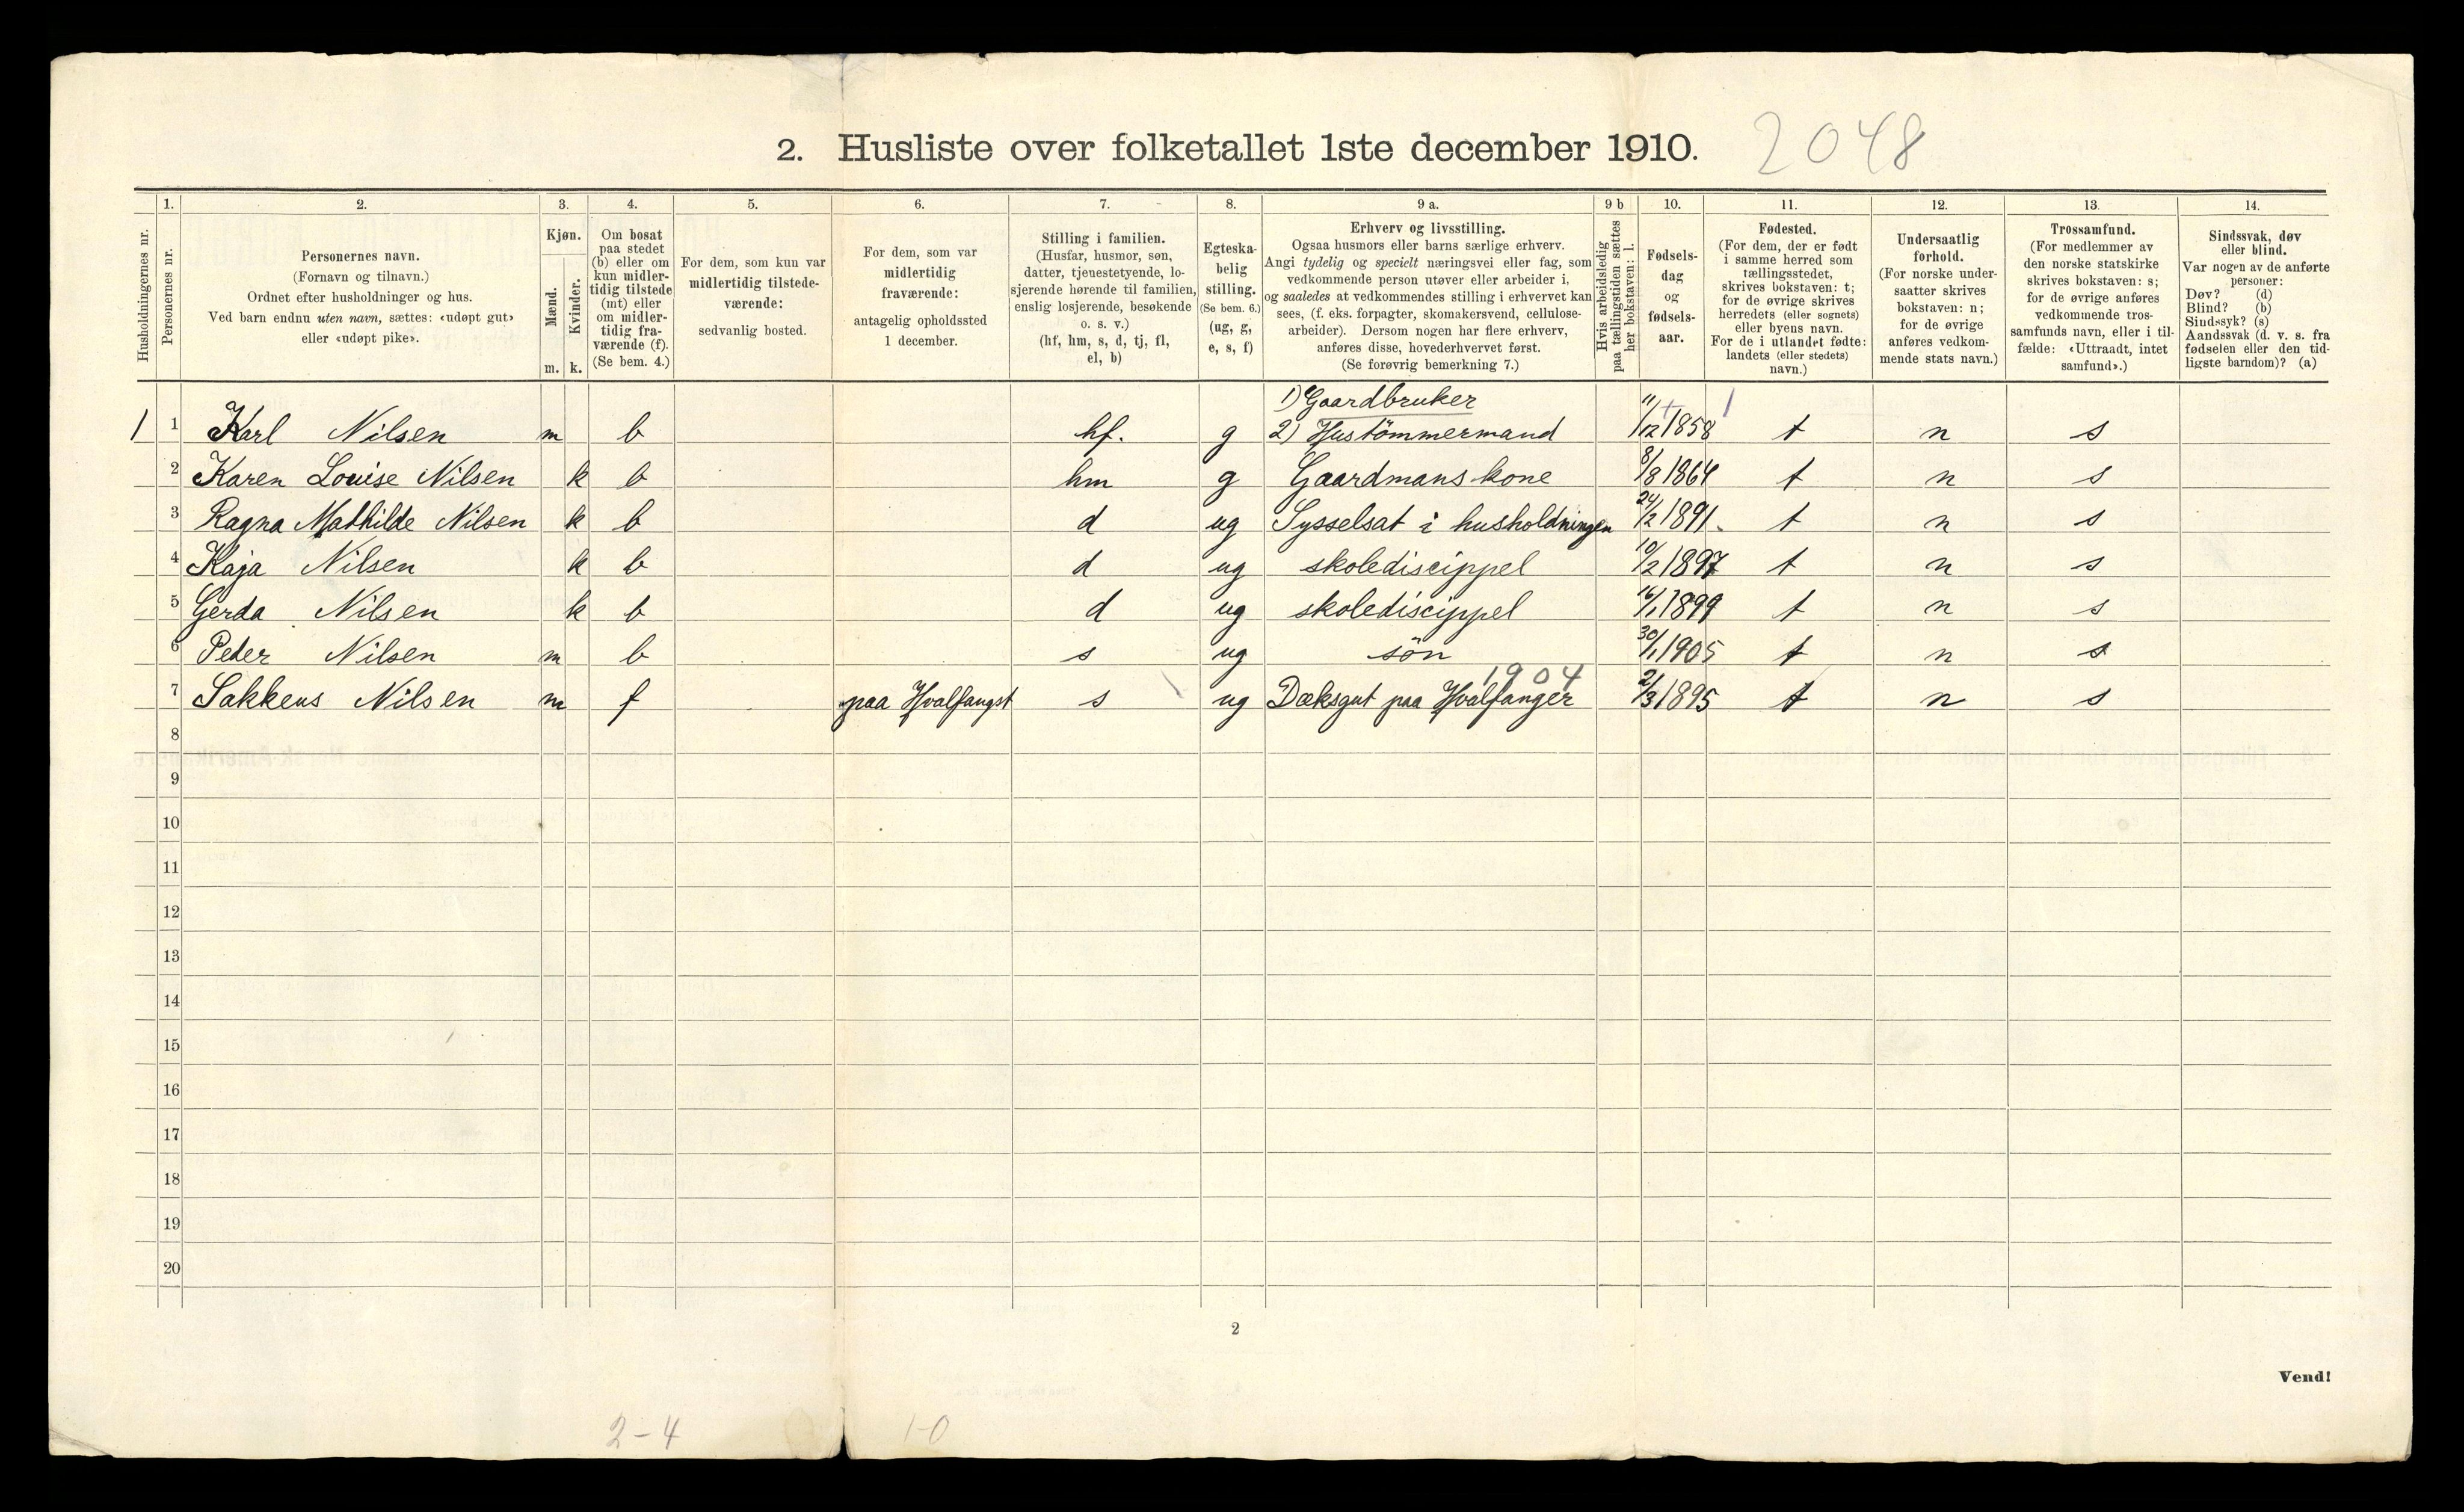 2. Husliste over folketallet 1ste december 1910. 2048
Husholdningernes nr.
1. Personernes nr.
2. Personernes navn. (Fornavn og tilnavn.) Ordnet efter husholdninger og hus. Ved barn endnu uten navn, sættes: «udøpt gut» eller «udøpt pike».
3. Kjøn. Mænd. m. Kvinder. k.
4. Om bosat paa stedet (b) eller om kun midlertidig tilstede (mt) eller om midlertidig fraværende (f). (Se bem. 4.)
5. For dem, som kun var midlertidig tilstedeværende: sedvanlig bosted.
6. For dem, som var midlertidig fraværende: antagelig opholdssted 1 december.
7. Stilling i familien. (Husfar, husmor, søn, datter, tjenestetyende, losjerende hørende til familien, enslig losjerende, besøkende o. s. v.) (hf, hm, s, d, tj, fl, el, b)
8. Egteskabelig stilling. (Se bem. 6.) (ug, g, e, s, f)
9 a. Erhverv og livsstilling. Ogsaa husmors eller barns særlige erhverv. Angi tydelig og specielt næringsvei eller fag, som vedkommende person utøver eller arbeider i, og saaledes at vedkommendes stilling i erhvervet kan sees, (f. eks. forpagter, skomakersvend, cellulosearbeider). Dersom nogen har flere erhverv, anføres disse, hovederhvervet først. (Se forøvrig bemerkning 7.)
9 b Hvis arbeidsledig paa tællingstiden sættes her bokstaven: l.
10. Fødselsdag og fødselsaar.
11. Fødested. (For dem, der er født i samme herred som tællingsstedet, skrives bokstaven: t; for de øvrige skrives herredets (eller sognets) eller byens navn. For de i utlandet fødte: landets (eller stedets) navn.)
12. Undersaatlig forhold. (For norske undersaatter skrives bokstaven: n; for de øvrige anføres vedkommende stats navn.)
13. Trossamfund. (For medlemmer av den norske statskirke skrives bokstaven: s; for de øvrige anføres vedkommende trossamfunds navn, eller i tilfælde: «Uttraadt, intet samfund».)
14. Sindssvak, døv eller blind. Var nogen av de anførte personer: Døv? (d) Blind? (b) Sindssyk? (s) Aandssvak (d. v. s. fra fødselen eller den tidligste barndom)? (a)
1 1 Karl Nilsen m b hf. g 1) Gaardbruker 2) Hustömmermand 11/12 1858 t n s
2 Karen Louise Nilsen k b hm g Gaardmans kone 8/8 1864 t n s
3 Ragna Mathilde Nilsen k b d ug Sysselsat i husholdningen 24/2 1891 t n s
4 Kaja Nilsen k b d ug skolediscippel 10/2 1897 t n s
5 Gerda Nilsen k b d ug skolediscippel 16/1 1899 t n s
6 Peder Nilsen m b s ug sön 30/1 1905 t n s
1904
7 Sakkeus Nilsen m f paa Hvalfangst s ug Dæksgut paa Hvalfanger 21/3 1895 t n s
8
9
10
11
12
13
14
15
16
17
18
19
20
2
Vend!
2-4 1-0